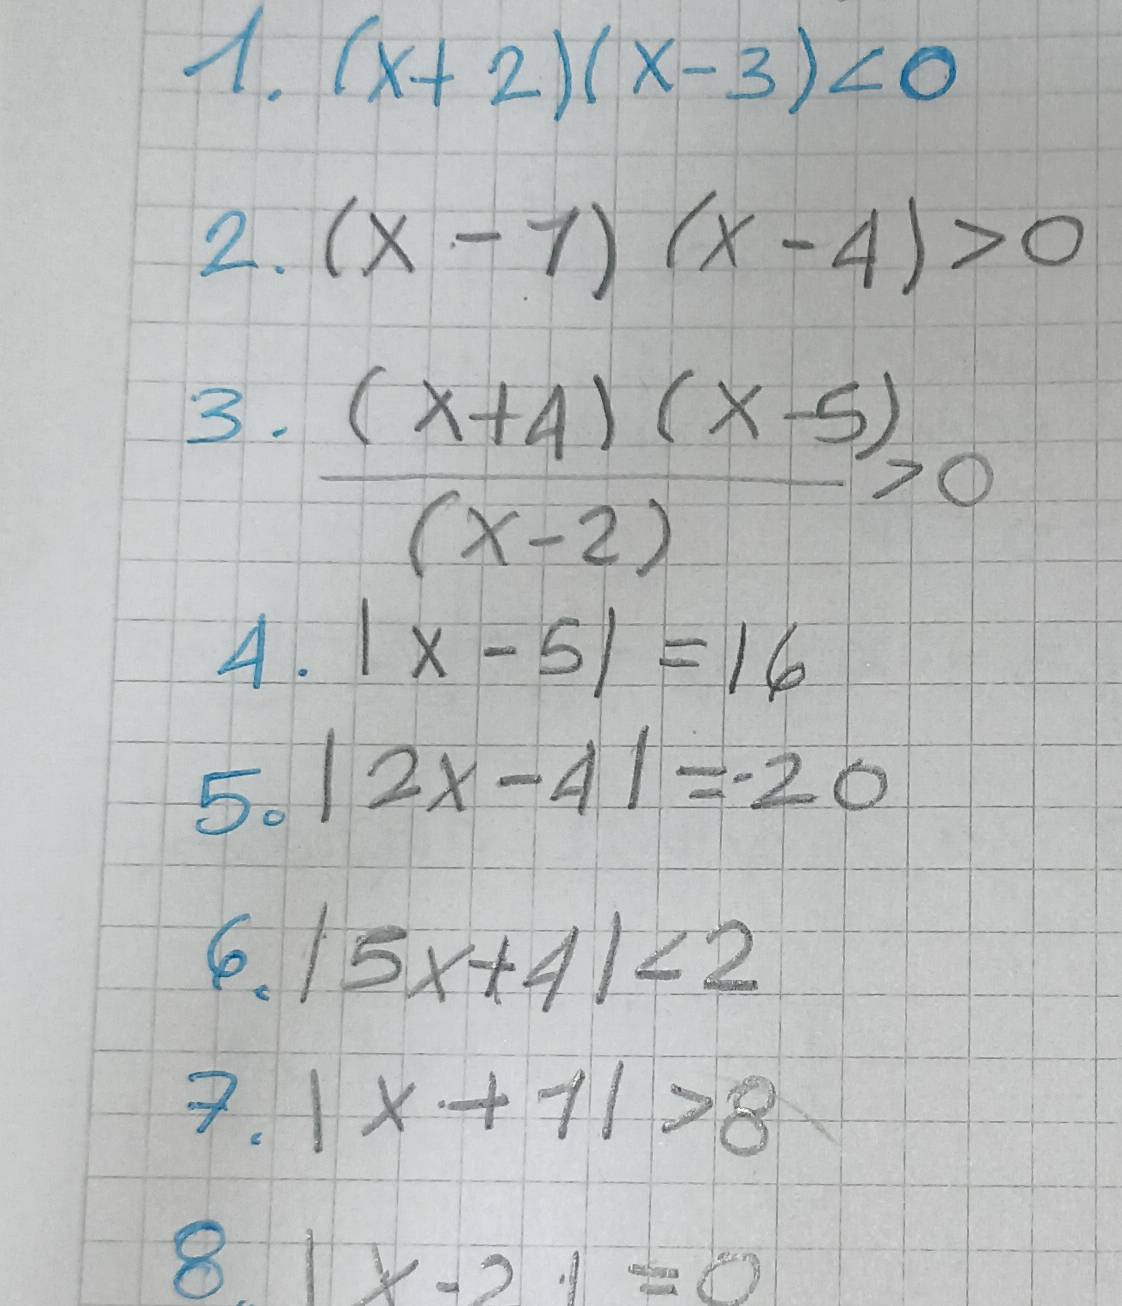 1. (x+2)(x-3)<0
2. (x-1) (x-4)>0
3. (x+4) (x-5)
(x-2) >0
4. |x-5| =16
5. |2x-4| =-20
6. |5x+4|<2
7. |x+1| >8
8. |x-2| =0